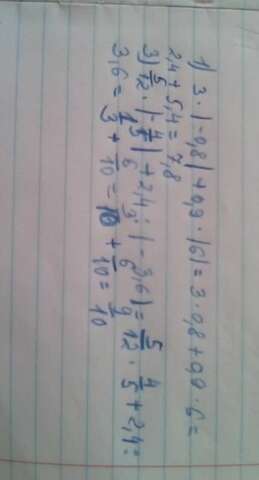 1) 3 · |-0,8| + 0,9 · |6| = 3 · 0,8 + 0,9 · 6 =
2,4 + 5,4 = 7,8
3) 5/12 · |-4/5| + 2,4 : |-3,6| = 5/12 · 4/5 + 2,4 :
3,6 = 1/3 + 6/10 = + 6/10 = 9/10